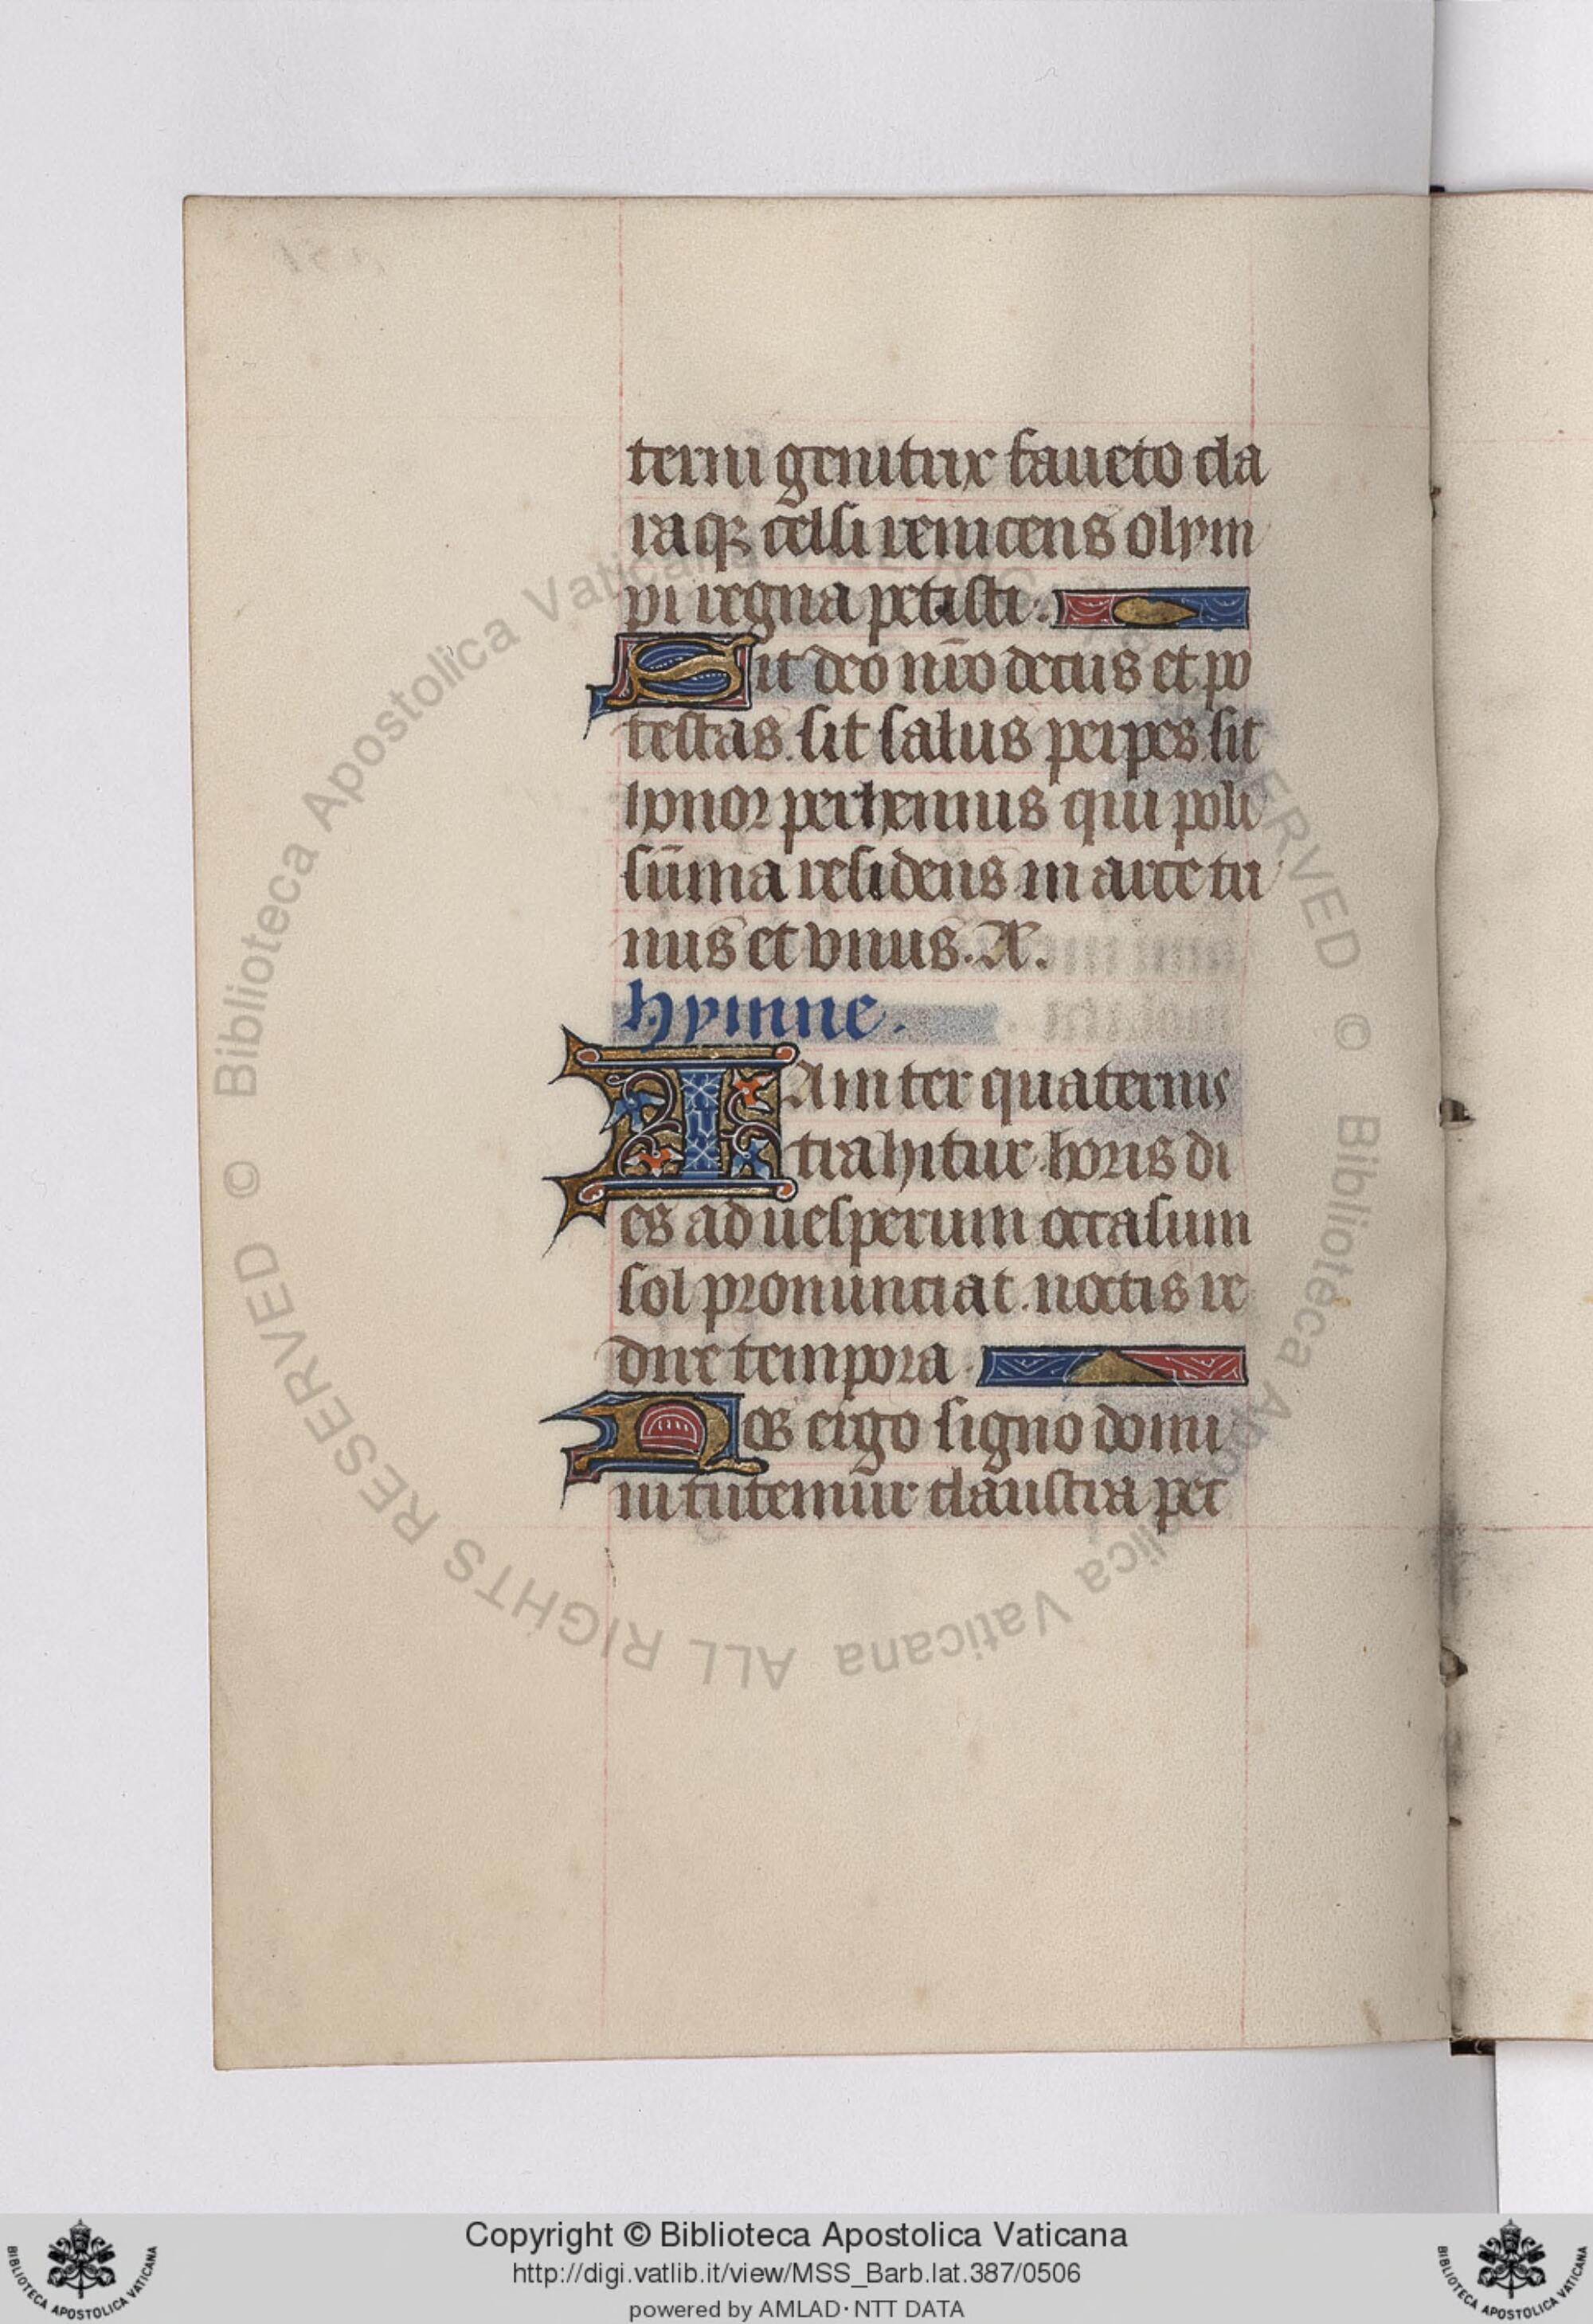 terni genitrix faueto cla
raqꝫ celsi renitens olym
pi regna petisti.
Sit deo nr̄o decus et po
testas. sit salus perpes. sit
honor perhennis qui poli
sūma residens in arce tri
nus et vnus. A.
hymne.
IAm ter quaternis
trahitur horis di
es ad uesperum occasum
sol pronunciat. noctis re
dire tempora.
Nos ergo signo domi
ni tutemur claustra pec
© Biblioteca Apostolica Vaticana ALL RIGHTS RESERVED © Biblioteca Apostolica Vaticana ALL RIGHTS RESERVED
Copyright © Biblioteca Apostolica Vaticana
http://digi.vatlib.it/view/MSS_Barb.lat.387/0506
powered by AMLAD·NTT DATA
BIBLIOTECA APOSTOLICA VATICANA
BIBLIOTECA APOSTOLICA VATICANA